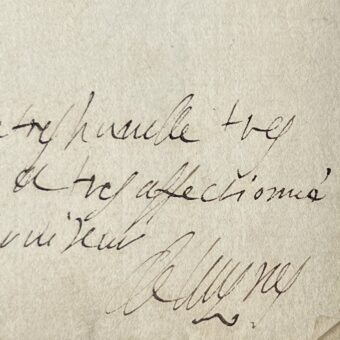 treshumble tres
et tres affectionné
viteur
de luynes